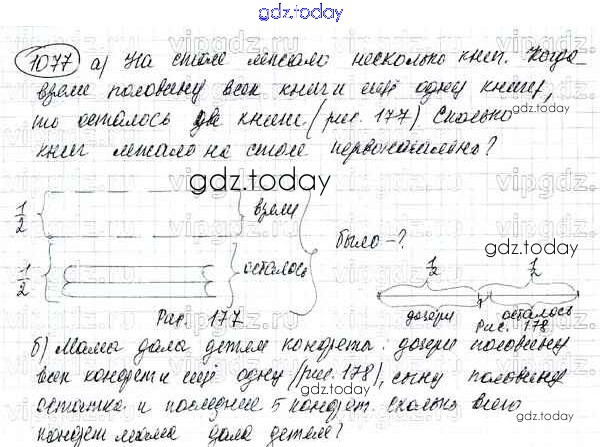 gdz.today
1077 а) На столе лежало несколько книг. Когда
взяли половину всех книг и ещё одну книгу,
gdz.today
то осталось две книги. (рис. 177) Сколько
книг лежало на столе первоначально?
gdz.today
1/2 взяли
было - ?
gdz.today
1/2 1/2
1/2 осталось
дочери осталось
Рис. 177
Рис. 178
gdz.today
б) Мама дала детям конфеты: дочери половину
всех конфет и ещё одну (рис. 178), сыну половину
gdz.today
остатка и последние 5 конфет. Сколько всего
конфет мама дала детям?
gdz.today